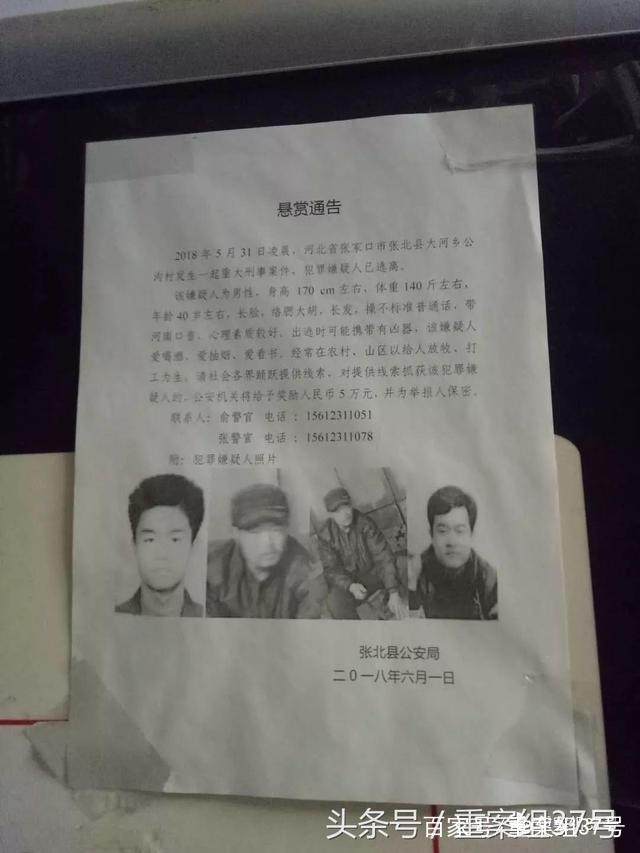 悬赏通告
2018 年 5 月 31 日凌晨，河北省张家口市张北县大河乡公
沟村发生一起重大刑事案件，犯罪嫌疑人已逃离。
该嫌疑人为男性，身高 170 cm 左右，体重 140 斤左右，
年龄 40 岁左右，长脸，络腮大胡，长发，操不标准普通话，带
河南口音，心理素质较好，出逃时可能携带有凶器，该嫌疑人
爱喝酒、爱抽烟、爱看书，经常在农村、山区以给人放牧、打
工为生。请社会各界踊跃提供线索，对提供线索抓获该犯罪嫌
疑人的，公安机关将给予奖励人民币 5 万元，并为举报人保密。
联系人：俞警官 电话：15612311051
张警官 电话：15612311078
附：犯罪嫌疑人照片
张北县公安局
二〇一八年六月一日
头条号/重案组37号
百家号/重案组37号